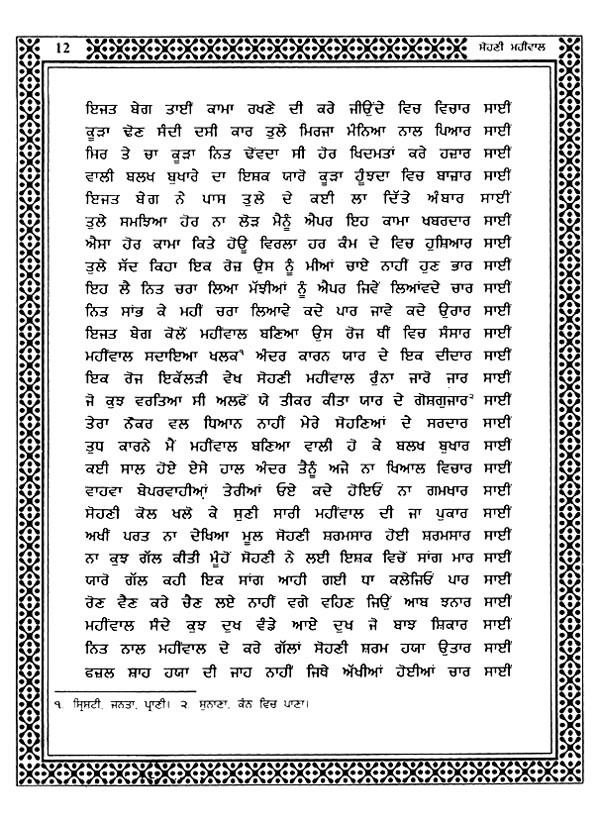 12
ਸੋਹਣੀ ਮਹੀਂਵਾਲ
ਇਜਤ ਬੇਗ ਤਾਈਂ ਕਾਮਾ ਰਖਣੇ ਦੀ ਕਰੇ ਜੀਉਂਦੇ ਵਿਚ ਵਿਚਾਰ ਸਾਈਂ
ਕੂੜਾ ਢੋਣ ਸੰਦੀ ਦਸੀ ਕਾਰ ਤੁਲੇ ਮਿਰਜਾ ਮੰਨਿਆ ਨਾਲ ਪਿਆਰ ਸਾਈਂ
ਸਿਰ ਤੇ ਚਾ ਕੂੜਾ ਨਿਤ ਢੋਂਵਦਾ ਸੀ ਹੋਰ ਖਿਦਮਤਾਂ ਕਰੇ ਹਜ਼ਾਰ ਸਾਈਂ
ਵਾਲੀ ਬਲਖ ਬੁਖਾਰੇ ਦਾ ਇਸ਼ਕ ਯਾਰੋ ਕੂੜਾ ਹੂੰਝਦਾ ਵਿਚ ਬਾਜ਼ਾਰ ਸਾਈਂ
ਇਜਤ ਬੇਗ ਨੇ ਪਾਸ ਤੁਲੇ ਦੇ ਕਈ ਲਾ ਦਿੱਤੇ ਅੰਬਾਰ ਸਾਈਂ
ਤੁਲੇ ਸਮਝਿਆ ਹੋਰ ਨਾ ਲੋੜ ਮੈਨੂੰ ਐਪਰ ਇਹ ਕਾਮਾ ਖਬਰਦਾਰ ਸਾਈਂ
ਐਸਾ ਹੋਰ ਕਾਮਾ ਕਿਤੇ ਹੋਊ ਵਿਰਲਾ ਹਰ ਕੰਮ ਦੇ ਵਿਚ ਹੁਸ਼ਿਆਰ ਸਾਈਂ
ਤੁਲੇ ਸੱਦ ਕਿਹਾ ਇਕ ਰੋਜ਼ ਉਸ ਨੂੰ ਮੀਆਂ ਚਾਏ ਨਾਹੀਂ ਹੁਣ ਭਾਰ ਸਾਈਂ
ਇਹ ਲੈ ਨਿਤ ਚਰਾ ਲਿਆ ਮੱਝੀਆਂ ਨੂੰ ਐਪਰ ਜਿਵੇਂ ਲਿਆਂਵਦੇ ਚਾਰ ਸਾਈਂ
ਨਿਤ ਸਾਂਭ ਕੇ ਮਹੀਂ ਚਰਾ ਲਿਆਵੇ ਕਦੇ ਪਾਰ ਜਾਵੇ ਕਦੇ ਉਰਾਰ ਸਾਈਂ
ਇਜਤ ਬੇਗ ਕੋਲੋਂ ਮਹੀਂਵਾਲ ਬਣਿਆ ਉਸ ਰੋਜ ਥੀਂ ਵਿਚ ਸੰਸਾਰ ਸਾਈਂ
ਮਹੀਂਵਾਲ ਸਦਾਇਆ ਖਲਕ੧ ਅੰਦਰ ਕਾਰਨ ਯਾਰ ਦੇ ਇਕ ਦੀਦਾਰ ਸਾਈਂ
ਇਕ ਰੋਜ ਇਕੱਲੜੀ ਵੇਖ ਸੋਹਣੀ ਮਹੀਂਵਾਲ ਰੁੰਨਾ ਜਾਰੋ ਜਾਰ ਸਾਈਂ
ਜੋ ਕੁਝ ਵਰਤਿਆ ਸੀ ਅਲਫੋਂ ਯੇ ਤੀਕਰ ਕੀਤਾ ਯਾਰ ਦੇ ਗੋਸ਼ਗੁਜ਼ਾਰ੨ ਸਾਈਂ
ਤੇਰਾ ਨੌਕਰ ਵਲ ਧਿਆਨ ਨਾਹੀਂ ਮੇਰੇ ਸੋਹਣਿਆਂ ਦੇ ਸਰਦਾਰ ਸਾਈਂ
ਤੁਧ ਕਾਰਨੇ ਮੈਂ ਮਹੀਂਵਾਲ ਬਣਿਆ ਵਾਲੀ ਹੋ ਕੇ ਬਲਖ ਬੁਖਾਰ ਸਾਈਂ
ਕਈ ਸਾਲ ਹੋਏ ਏਸੇ ਹਾਲ ਅੰਦਰ ਤੈਨੂੰ ਅਜੇ ਨਾ ਖਿਆਲ ਵਿਚਾਰ ਸਾਈਂ
ਵਾਹਵਾ ਬੇਪਰਵਾਹੀਆਂ ਤੇਰੀਆਂ ਓਏ ਕਦੇ ਹੋਇਓਂ ਨਾ ਗਮਖਾਰ ਸਾਈਂ
ਸੋਹਣੀ ਕੋਲ ਖਲੋ ਕੇ ਸੁਣੀ ਸਾਰੀ ਮਹੀਂਵਾਲ ਦੀ ਜਾ ਪੁਕਾਰ ਸਾਈਂ
ਅਖੀਂ ਪਰਤ ਨਾ ਦੇਖਿਆ ਮੂਲ ਸੋਹਣੀ ਸ਼ਰਮਸਾਰ ਹੋਈ ਸ਼ਰਮਸਾਰ ਸਾਈਂ
ਨਾ ਕੁਝ ਗੱਲ ਕੀਤੀ ਮੂੰਹੋਂ ਸੋਹਣੀ ਨੇ ਲਈ ਇਸ਼ਕ ਵਿਚੋਂ ਸਾਂਗ ਮਾਰ ਸਾਈਂ
ਯਾਰੋ ਗੱਲ ਕਹੀ ਇਕ ਸਾਂਗ ਆਹੀ ਗਈ ਧਾ ਕਲੇਜਿਓਂ ਪਾਰ ਸਾਈਂ
ਰੋਣ ਵੈਣ ਕਰੇ ਚੈਣ ਲਏ ਨਾਹੀਂ ਵਗੇ ਵਹਿਣ ਜਿਉਂ ਆਬ ਝਨਾਰ ਸਾਈਂ
ਮਹੀਂਵਾਲ ਸੰਦੇ ਕੁਝ ਦੁਖ ਵੰਡੇ ਆਏ ਦੁਖ ਜੋ ਬਾਝ ਸ਼ਿਕਾਰ ਸਾਈਂ
ਨਿਤ ਨਾਲ ਮਹੀਂਵਾਲ ਦੇ ਕਰੇ ਗੱਲਾਂ ਸੋਹਣੀ ਸ਼ਰਮ ਹਯਾ ਉਤਾਰ ਸਾਈਂ
ਫਜ਼ਲ ਸ਼ਾਹ ਹਯਾ ਦੀ ਜਾਹ ਨਾਹੀਂ ਜਿਥੇ ਅੱਖੀਆਂ ਹੋਈਆਂ ਚਾਰ ਸਾਈਂ
੧. ਸ੍ਰਿਸ਼ਟੀ, ਜਨਤਾ, ਪ੍ਰਾਣੀ। ੨. ਸੁਨਾਣਾ, ਕੰਨ ਵਿਚ ਪਾਣਾ।